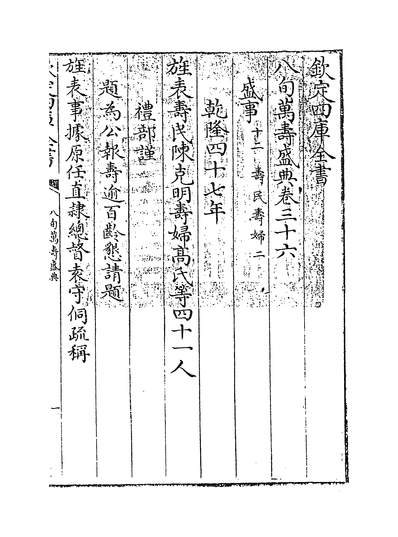 欽定四庫全書
八旬萬壽盛典卷三十六
盛事十二 壽民壽婦二
乾隆四十七年
旌表壽民陳克明壽婦髙氏等四十一人
禮部謹
題為公報壽逾百齡懇請題
旌表事據原任直隸總督袁守侗疏稱
欽定四庫全書
八旬萬壽盛典
一